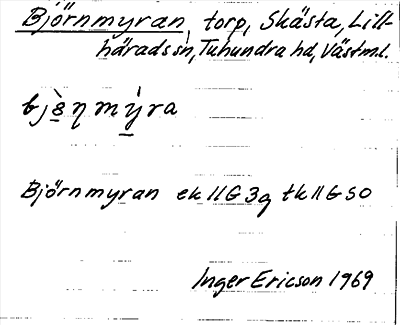 Björnmyran, torp, Skästa, Lill-
härads sn, Tuhundra hd, Västml.
bjɛ̀ꞃmýra
Björnmyran ek 11G3g tk 11G SO
Inger Ericson 1969